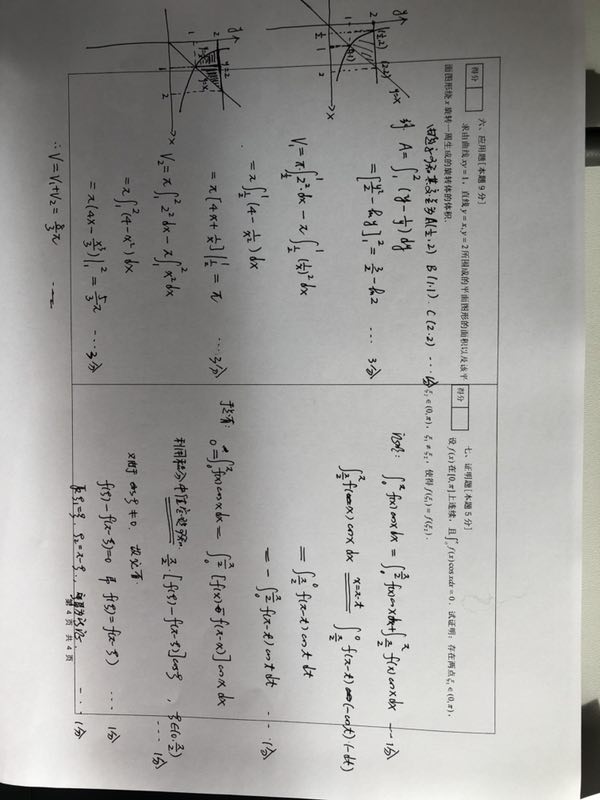 得分
六、应用题[本题9分]
求由曲线 xy=1，直线 y=x, y=2 所围成的平面图形的面积以及该平
面图形绕 x 旋转一周生成的旋转体的体积.
A(½,2) B(1.1). C(2.2) ···
A=∫₁²(y-1/y)dy
=[y²/2-lny]₁²=3/2-ln2 ··· 3分
V₁=π∫_{1/2}^1 2²·dx-π∫_{1/2}^1(1/x)²dx
=π∫_{1/2}^1(4-1/x²)dx
=π[4x+1/x]|_{1/2}^1=π ···3分
V₂=π∫₁²2²dx-π∫₁²x²dx
=π∫₁²(4-x²)dx
=π(4x-x³/3)|₁²=5/3π ···3分
∴V=V₁+V₂=8/3π
y
(½,2)
(2.2)
y=x
2
(1,1)
1
½
1
2
x
y
y=2
2
y=x
1
1
2
x
得分
七、证明题[本题5分]
设 f(x) 在[0,π]上连续，且∫₀^π f(x)cosxdx=0．试证明：存在两点 ξ₁∈(0,π)，
ξ₂∈(0,π)，ξ₁≠ξ₂，使得 f(ξ₁)=f(ξ₂)．
证明: ∫₀^π f(x)cosxdx=∫₀^{π/2}f(x)cosxdx+∫_{π/2}^π f(x)cosxdx ···1分
∫_{π/2}^π f(x)cosxdx x=π-t ∫_{π/2}^0 f(π-t)(-cost)(-dt)
=∫_{π/2}^0 f(π-t)cost dt
=-∫₀^{π/2}f(π-t)costdt ···1分
于是有: 0=∫₀^π f(x)cosxdx=∫₀^{π/2}[f(x)-f(π-x)]cosxdx
利用积分中值定理 π/2·[f(ξ)-f(π-ξ)]cosξ，ξ∈(0.π/2)
···1分
cosξ≠0.
f(ξ)-f(π-ξ)=0 即 f(ξ)=f(π-ξ) ···1分
取ξ₁=ξ，ξ₂=π-ξ ···1分
第 4 页 共 4 页